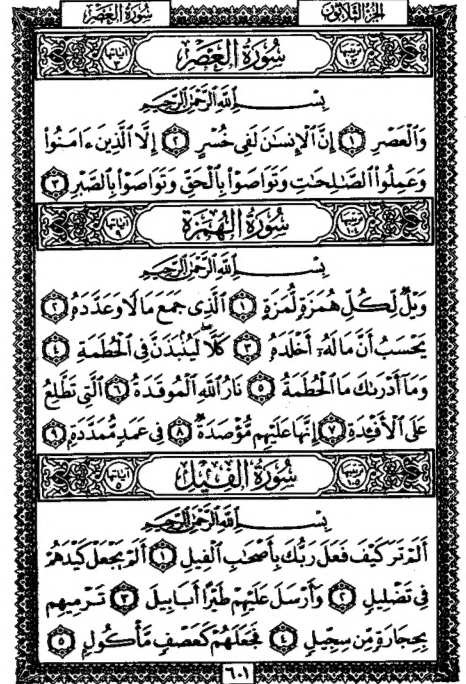 سُورَةُ العَصْرِ الجُزْءُ الثَّلَاثُونَ
ترتيبها ١٠٣ سُورَةُ العَصْرِ آياتها ٣
بِسْمِ ٱللَّهِ ٱلرَّحْمَٰنِ ٱلرَّحِيمِ
وَٱلْعَصْرِ ١ إِنَّ ٱلْإِنسَٰنَ لَفِى خُسْرٍ ٢ إِلَّا ٱلَّذِينَ ءَامَنُوا۟
وَعَمِلُوا۟ ٱلصَّٰلِحَٰتِ وَتَوَاصَوْا۟ بِٱلْحَقِّ وَتَوَاصَوْا۟ بِٱلصَّبْرِ ٣
ترتيبها ١٠٤ سُورَةُ الهُمَزَةِ آياتها ٩
بِسْمِ ٱللَّهِ ٱلرَّحْمَٰنِ ٱلرَّحِيمِ
وَيْلٌ لِّكُلِّ هُمَزَةٍ لُّمَزَةٍ ١ ٱلَّذِى جَمَعَ مَالًا وَعَدَّدَهُۥ ٢
يَحْسَبُ أَنَّ مَالَهُۥٓ أَخْلَدَهُۥ ٣ كَلَّا ۖ لَيُنۢبَذَنَّ فِى ٱلْحُطَمَةِ ٤
وَمَآ أَدْرَىٰكَ مَا ٱلْحُطَمَةُ ٥ نَارُ ٱللَّهِ ٱلْمُوقَدَةُ ٦ ٱلَّتِى تَطَّلِعُ
عَلَى ٱلْأَفْـِٔدَةِ ٧ إِنَّهَا عَلَيْهِم مُّؤْصَدَةٌ ٨ فِى عَمَدٍ مُّمَدَّدَةٍۭ ٩
ترتيبها ١٠٥ سُورَةُ الفِيلِ آياتها ٥
بِسْمِ ٱللَّهِ ٱلرَّحْمَٰنِ ٱلرَّحِيمِ
أَلَمْ تَرَ كَيْفَ فَعَلَ رَبُّكَ بِأَصْحَٰبِ ٱلْفِيلِ ١ أَلَمْ يَجْعَلْ كَيْدَهُمْ
فِى تَضْلِيلٍ ٢ وَأَرْسَلَ عَلَيْهِمْ طَيْرًا أَبَابِيلَ ٣ تَرْمِيهِم
بِحِجَارَةٍ مِّن سِجِّيلٍ ٤ فَجَعَلَهُمْ كَعَصْفٍ مَّأْكُولٍۭ ٥
٦٠١